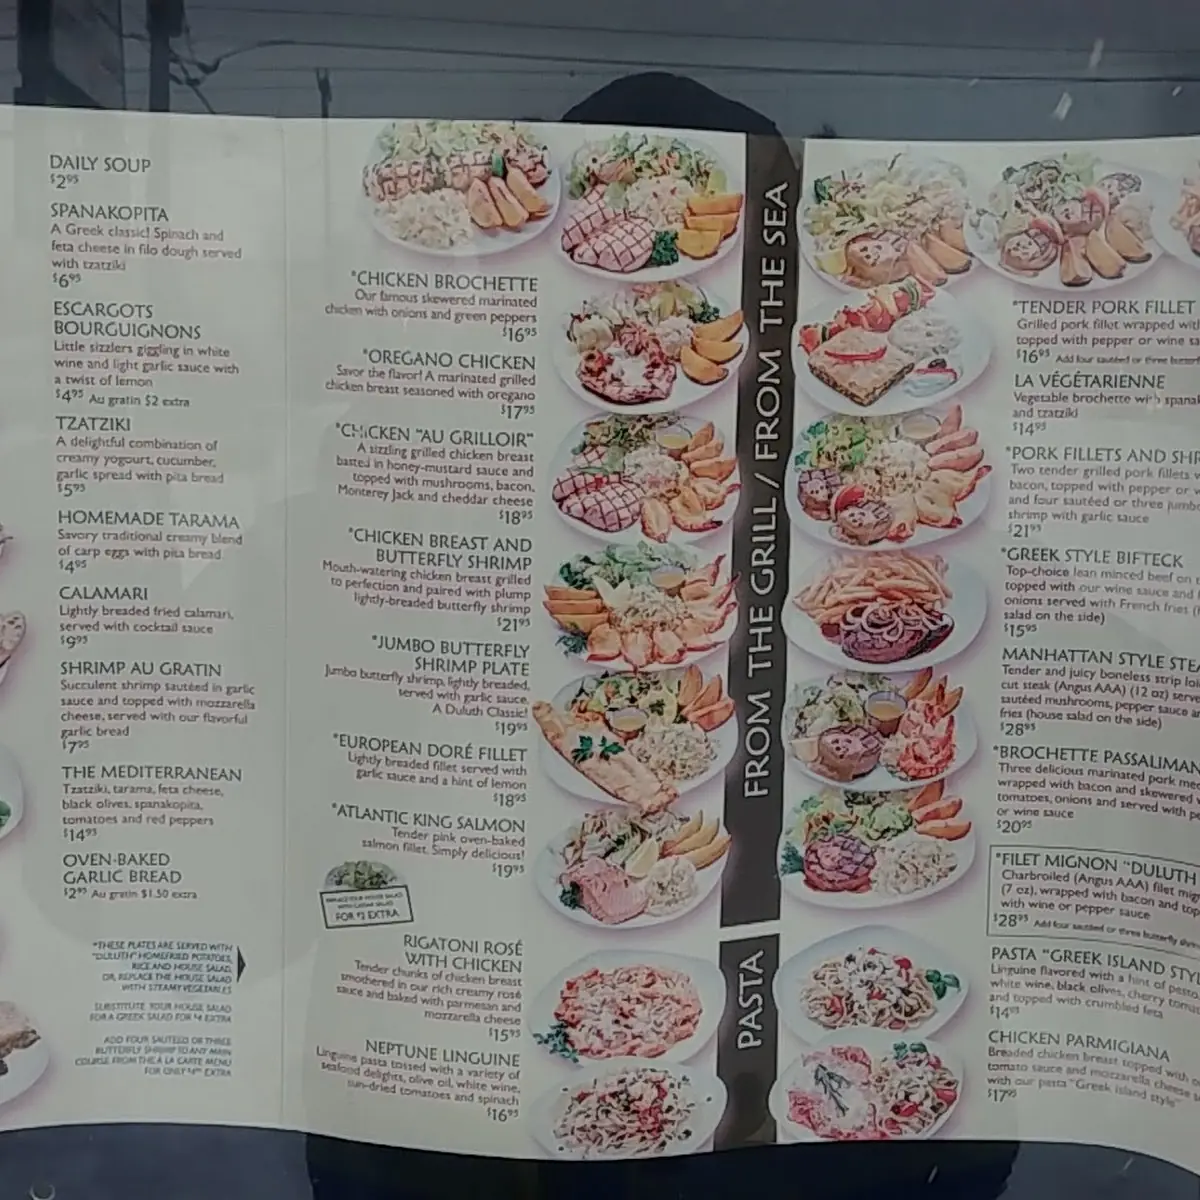 DAILY SOUP
$2.95
SPANAKOPITA
A Greek classic! Spinach and
feta cheese in filo dough served
with tzatziki
$6.95
ESCARGOTS
BOURGUIGNONS
Little sizzlers giggling in white
wine and light garlic sauce with
a twist of lemon
$4.95 Au gratin $2 extra
TZATZIKI
A delightful combination of
creamy yogourt, cucumber,
garlic spread with pita bread
$5.95
HOMEMADE TARAMA
Savory traditional creamy blend
of carp eggs with pita bread
$4.95
CALAMARI
Lightly breaded fried calamari,
served with cocktail sauce
$9.95
SHRIMP AU GRATIN
Succulent shrimp sautéed in garlic
sauce and topped with mozzarella
cheese, served with our flavorful
garlic bread
$7.95
THE MEDITERRANEAN
Tzatziki, tarama, feta cheese,
black olives, spanakopita,
tomatoes and red peppers
$14.95
OVEN-BAKED
GARLIC BREAD
$2.95 Au gratin $1.50 extra
*THESE PLATES ARE SERVED WITH
"DULUTH" HOMEFRIED POTATOES,
RICE AND HOUSE SALAD,
OR, REPLACE THE HOUSE SALAD
WITH STEAMY VEGETABLES
SUBSTITUTE YOUR HOUSE SALAD
FOR A GREEK SALAD FOR $4 EXTRA
ADD FOUR SAUTEED OR THREE
BUTTERFLY SHRIMP TO ANY MAIN
COURSE FROM THE A LA CARTE MENU
FOR ONLY EXTRA
*CHICKEN BROCHETTE
Our famous skewered marinated
chicken with onions and green peppers
$16.95
*OREGANO CHICKEN
Savor the flavor! A marinated grilled
chicken breast seasoned with oregano
$17.95
*CHICKEN "AU GRILLOIR"
A sizzling grilled chicken breast
basted in honey-mustard sauce and
topped with mushrooms, bacon,
Monterey Jack and cheddar cheese
$18.95
*CHICKEN BREAST AND
BUTTERFLY SHRIMP
Mouth-watering chicken breast grilled
to perfection and paired with plump
lightly-breaded butterfly shrimp
$21.95
*JUMBO BUTTERFLY
SHRIMP PLATE
Jumbo butterfly shrimp, lightly breaded,
served with garlic sauce.
A Duluth Classic!
$19.95
*EUROPEAN DORÉ FILLET
Lightly breaded fillet served with
garlic sauce and a hint of lemon
$18.95
*ATLANTIC KING SALMON
Tender pink oven-baked
salmon fillet. Simply delicious!
$19.95
REPLACE YOUR HOUSE SALAD
WITH CAESAR SALAD
FOR $2 EXTRA
RIGATONI ROSÉ
WITH CHICKEN
Tender chunks of chicken breast
smothered in our rich creamy rosé
sauce and baked with parmesan and
mozzarella cheese
$15.95
NEPTUNE LINGUINE
Linguine pasta tossed with a variety of
seafood delights, olive oil, white wine,
sun-dried tomatoes and spinach
$16.95
FROM THE GRILL / FROM THE SEA
PASTA
*TENDER PORK FILLET
Grilled pork fillet wrapped wi
topped with pepper or wine sa
$16.95 Add four sautéed or three butter
LA VÉGÉTARIENNE
Vegetable brochette with spanak
and tzatziki
$14.95
*PORK FILLETS AND SHR
Two tender grilled pork fillets w
bacon, topped with pepper or
and four sautéed or three jumbo
shrimp with garlic sauce
$21.95
*GREEK STYLE BIFTECK
Top-choice lean minced beef on
topped with our wine sauce and
onions served with French fries (
salad on the side)
$15.95
MANHATTAN STYLE STEA
Tender and juicy boneless strip loi
cut steak (Angus AAA) (12 oz) serve
sautéed mushrooms, pepper sauce a
fries (house salad on the side)
$28.95
*BROCHETTE PASSALIMAN
Three delicious marinated pork me
wrapped with bacon and skewered
tomatoes, onions and served with pe
or wine sauce
$20.95
*FILET MIGNON "DULUTH
Charbroiled (Angus AAA) filet mig
(7 oz), wrapped with bacon and top
with wine or pepper sauce
$28.95 Add four sautéed or three butterfly shr
PASTA "GREEK ISLAND STYL
Linguine flavored with a hint of pesto,
white wine, black olives, cherry toma
and topped with crumbled feta
$14.95
CHICKEN PARMIGIANA
Breaded chicken breast topped with
tomato sauce and mozzarella cheese s
with our pasta "Greek island style"
$17.95